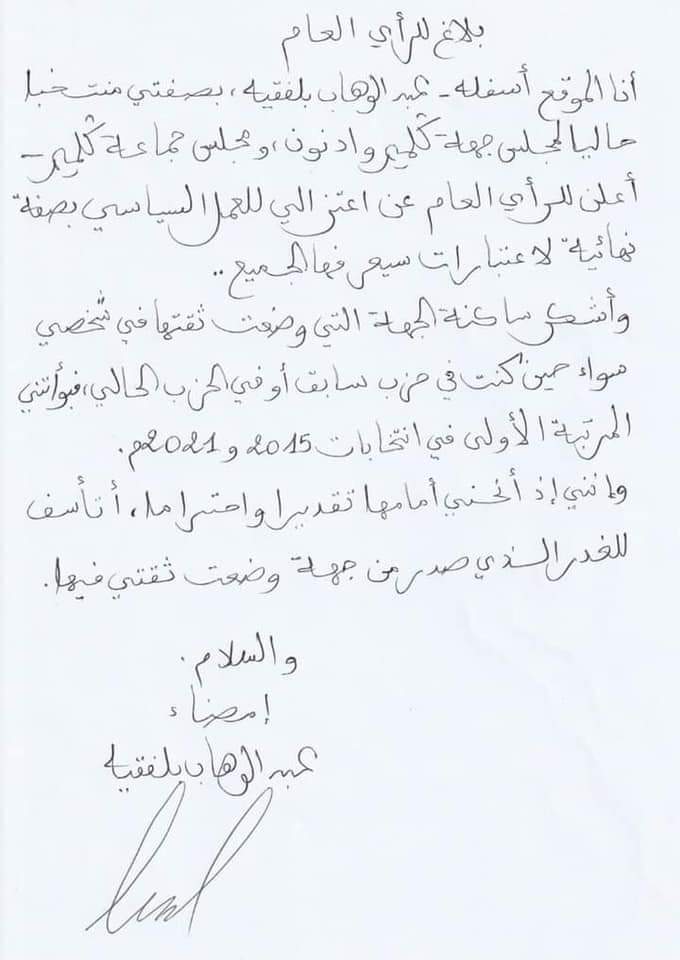 بلاغ للرأي العام
أنا الموقع أسفله - عبد الوهاب بلفقيه، بصفتي منتخبا
حاليا لمجلس جهة كلميم وادنون، ومجلس جماعة كلميم -
أعلن للرأي العام عن اعتزالي للعمل السياسي بصفة
نهائية لاعتبارات سيعرفها الجميع ..
وأشكر ساكنة الجهة التي وضعت ثقتها في شخصي
سواء حين كنت في حزب سابق أو في الحزب الحالي، فبوأتني
المرتبة الأولى في انتخابات 2015 و 2021م.
وإنني إذ أنحني أمامها تقديرا واحتراما، أتأسف
للغدر الذي صدر من جهة وضعت ثقتي فيها.
والسلام.
إمضاء
عبد الوهاب بلفقيه